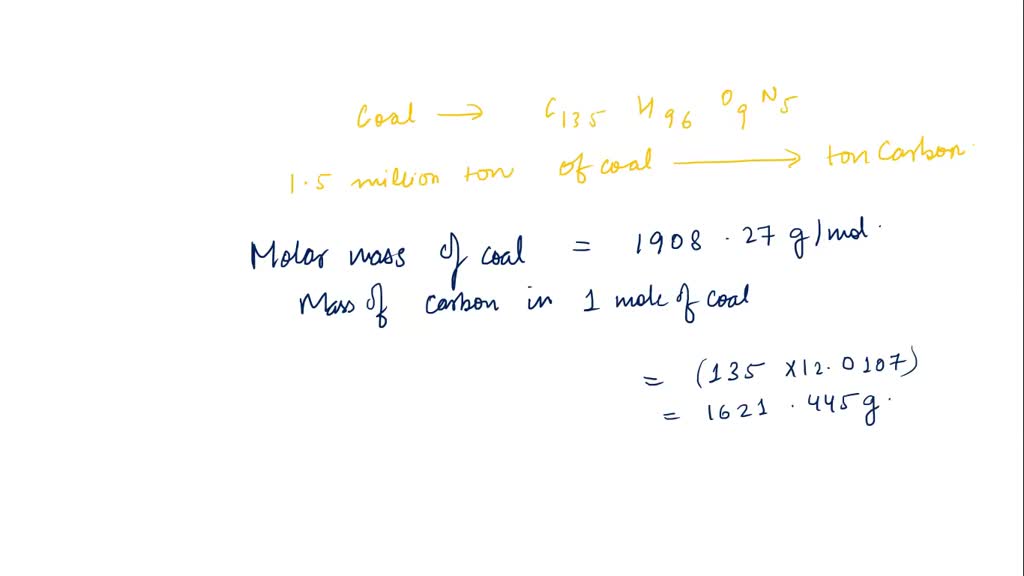 Coal → C135 H96 O9 N5
1.5 million ton of coal → ton Carbon.
Molar mass of coal = 1908.27 g/mol.
Mass of carbon in 1 mole of coal
= (135 x12.0107)
= 1621.445g.